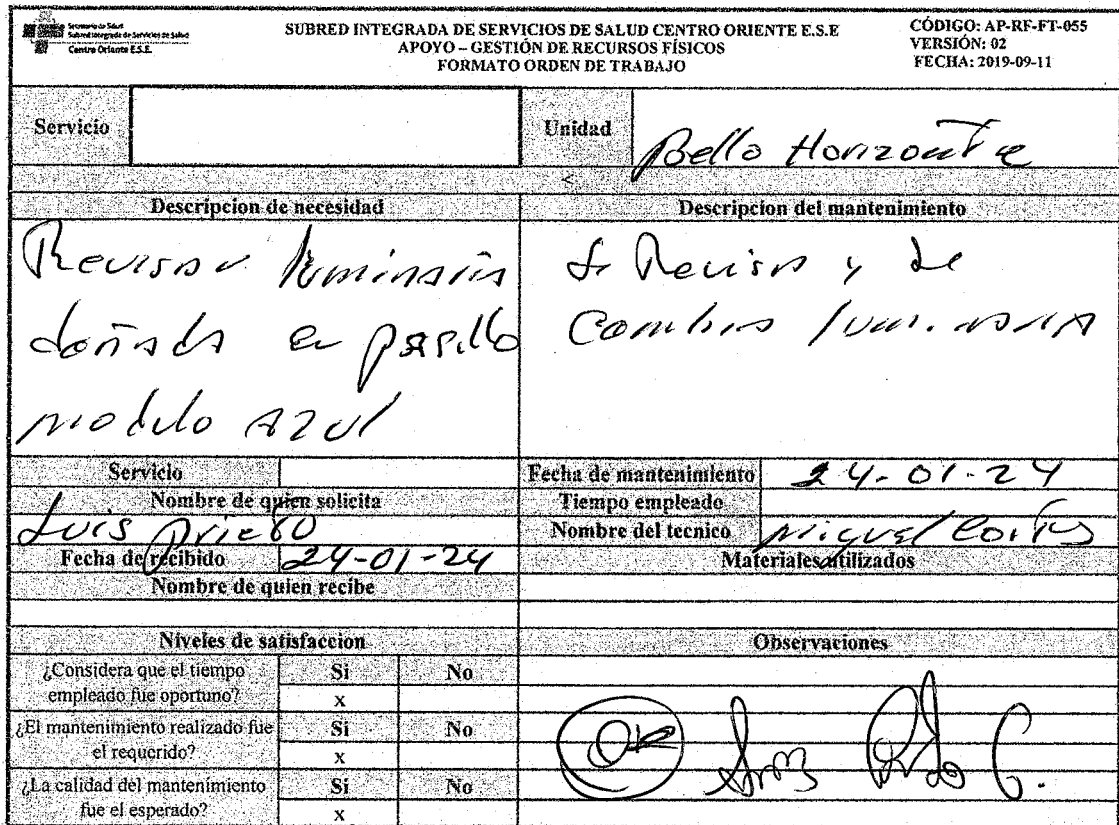 Secretaría de Salud
Subred Integrada de Servicios de Salud
Centro Oriente E.S.E.
SUBRED INTEGRADA DE SERVICIOS DE SALUD CENTRO ORIENTE E.S.E
APOYO – GESTIÓN DE RECURSOS FÍSICOS
FORMATO ORDEN DE TRABAJO
CÓDIGO: AP-RF-FT-055
VERSIÓN: 02
FECHA: 2019-09-11
Servicio
Unidad
Bello Horizonte
Descripcion de necesidad
Revisar luminaria
dañada en pasillo
modulo azul
Descripcion del mantenimiento
Se Reviso y se
Cambio luminaria
Servicio
Nombre de quien solicita
Luis Prieto
Fecha de recibido 24-01-24
Nombre de quien recibe
Fecha de mantenimiento 24-01-24
Tiempo empleado
Nombre del tecnico Miguel Cortes
Materiales utilizados
Niveles de satisfaccion
¿Considera que el tiempo
empleado fue oportuno?
Si No
x
¿El mantenimiento realizado fue
el requerido?
Si No
x
¿La calidad del mantenimiento
fue el esperado?
Si No
x
Observaciones
OK